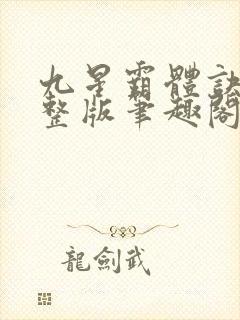 九星霸體訣
整版筆趣閣
龍劍武